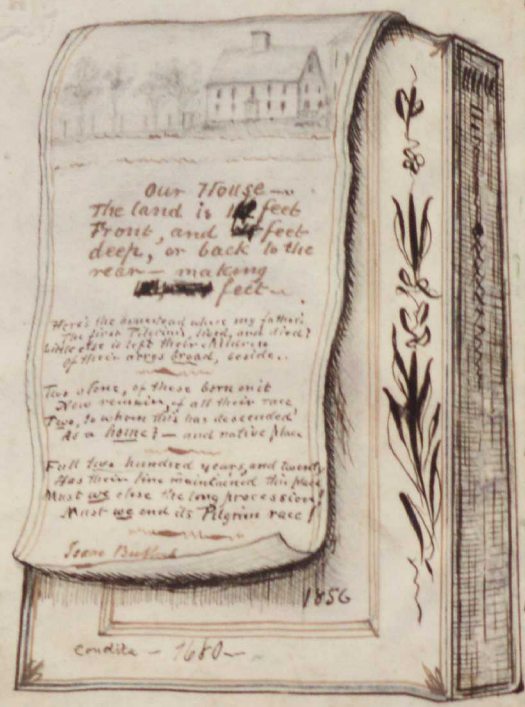 Our House —
The land is feet
Front, and feet
deep, or back to the
rear — making
feet —
Here's the homestead where my fathers
The first Pilgrims, lived, and died!
Little else is left their children
of their acres broad, beside..
Two alone, of those born on it
Now remain, of all their race
Two, to whom this has descended
As a home! — and native place
Full two hundred years, and twenty
Has their line maintained this place
Must we close the long procession!
Must we end its Pilgrim race!
Isaac
1856
Condita — 1680 —